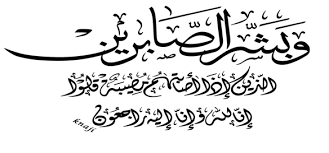 وَبَشِّرِ الصَّابِرِينَ
الَّذِينَ إِذَا أَصَابَتْهُمْ مُصِيبَةٌ قَالُوا
إِنَّا لِلَّهِ وَإِنَّا إِلَيْهِ رَاجِعُونَ
knaji